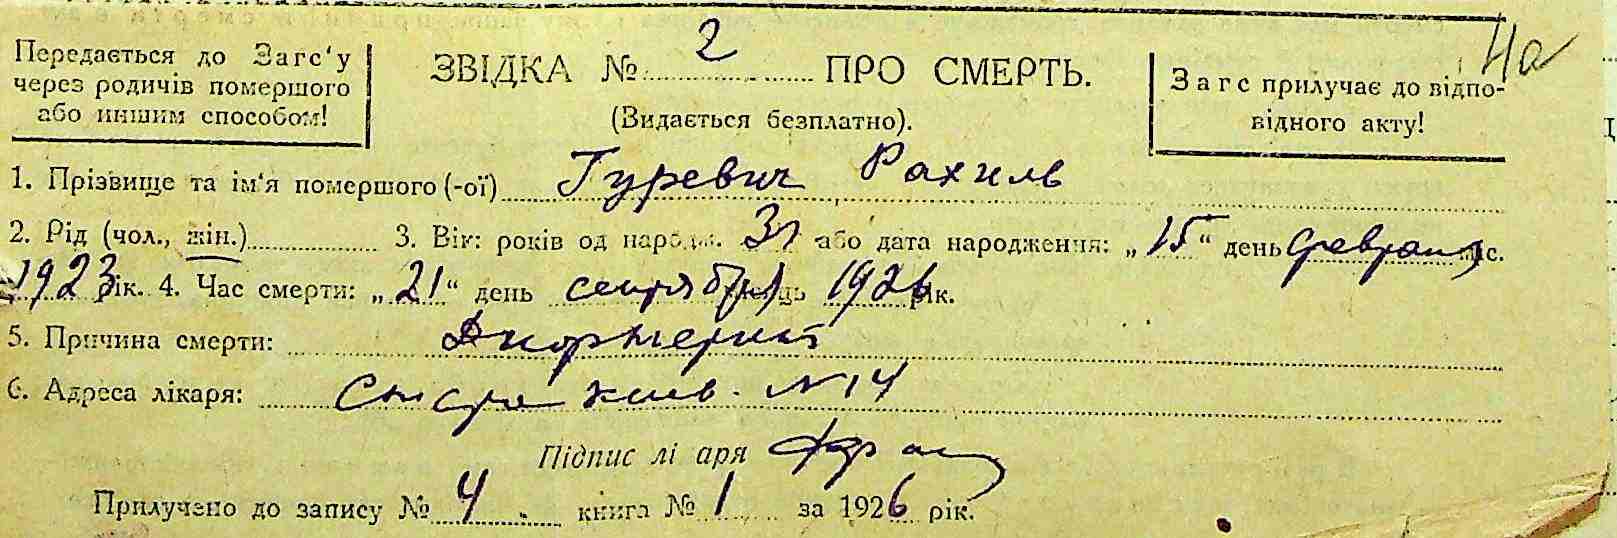 Передається до Загс'у
через родичів помершого
або иншим способом!
ЗВІДКА № 2 ПРО СМЕРТЬ.
(Видається безплатно).
4а
Загс прилучає до відпо-
відного акту!
1. Прізвище та ім'я помершого (-ої) Гуревич Рахиль
2. Рід (чол., жін.) 3. Вік: років од народж. або дата народження: „15" день февраля міс.
1923 рік. 4. Час смерти: „21" день сентября місяць 1926 рік.
5. Причина смерти:
6. Адреса лікаря: киев. N 14
Підпис лі аря
Прилучено до запису № 4 книга № 1 за 1926 рік.